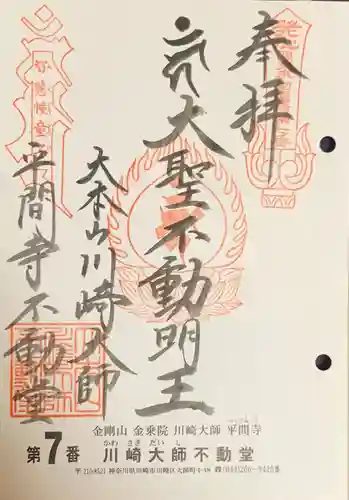 奉拝
大聖不動明王
大本山川崎大師
平間寺不動堂
金剛山 金乗院 川崎大師 平間寺
かわ さき だい し
第7番 川崎大師不動堂
神奈川県川崎市川崎区大師町4-48